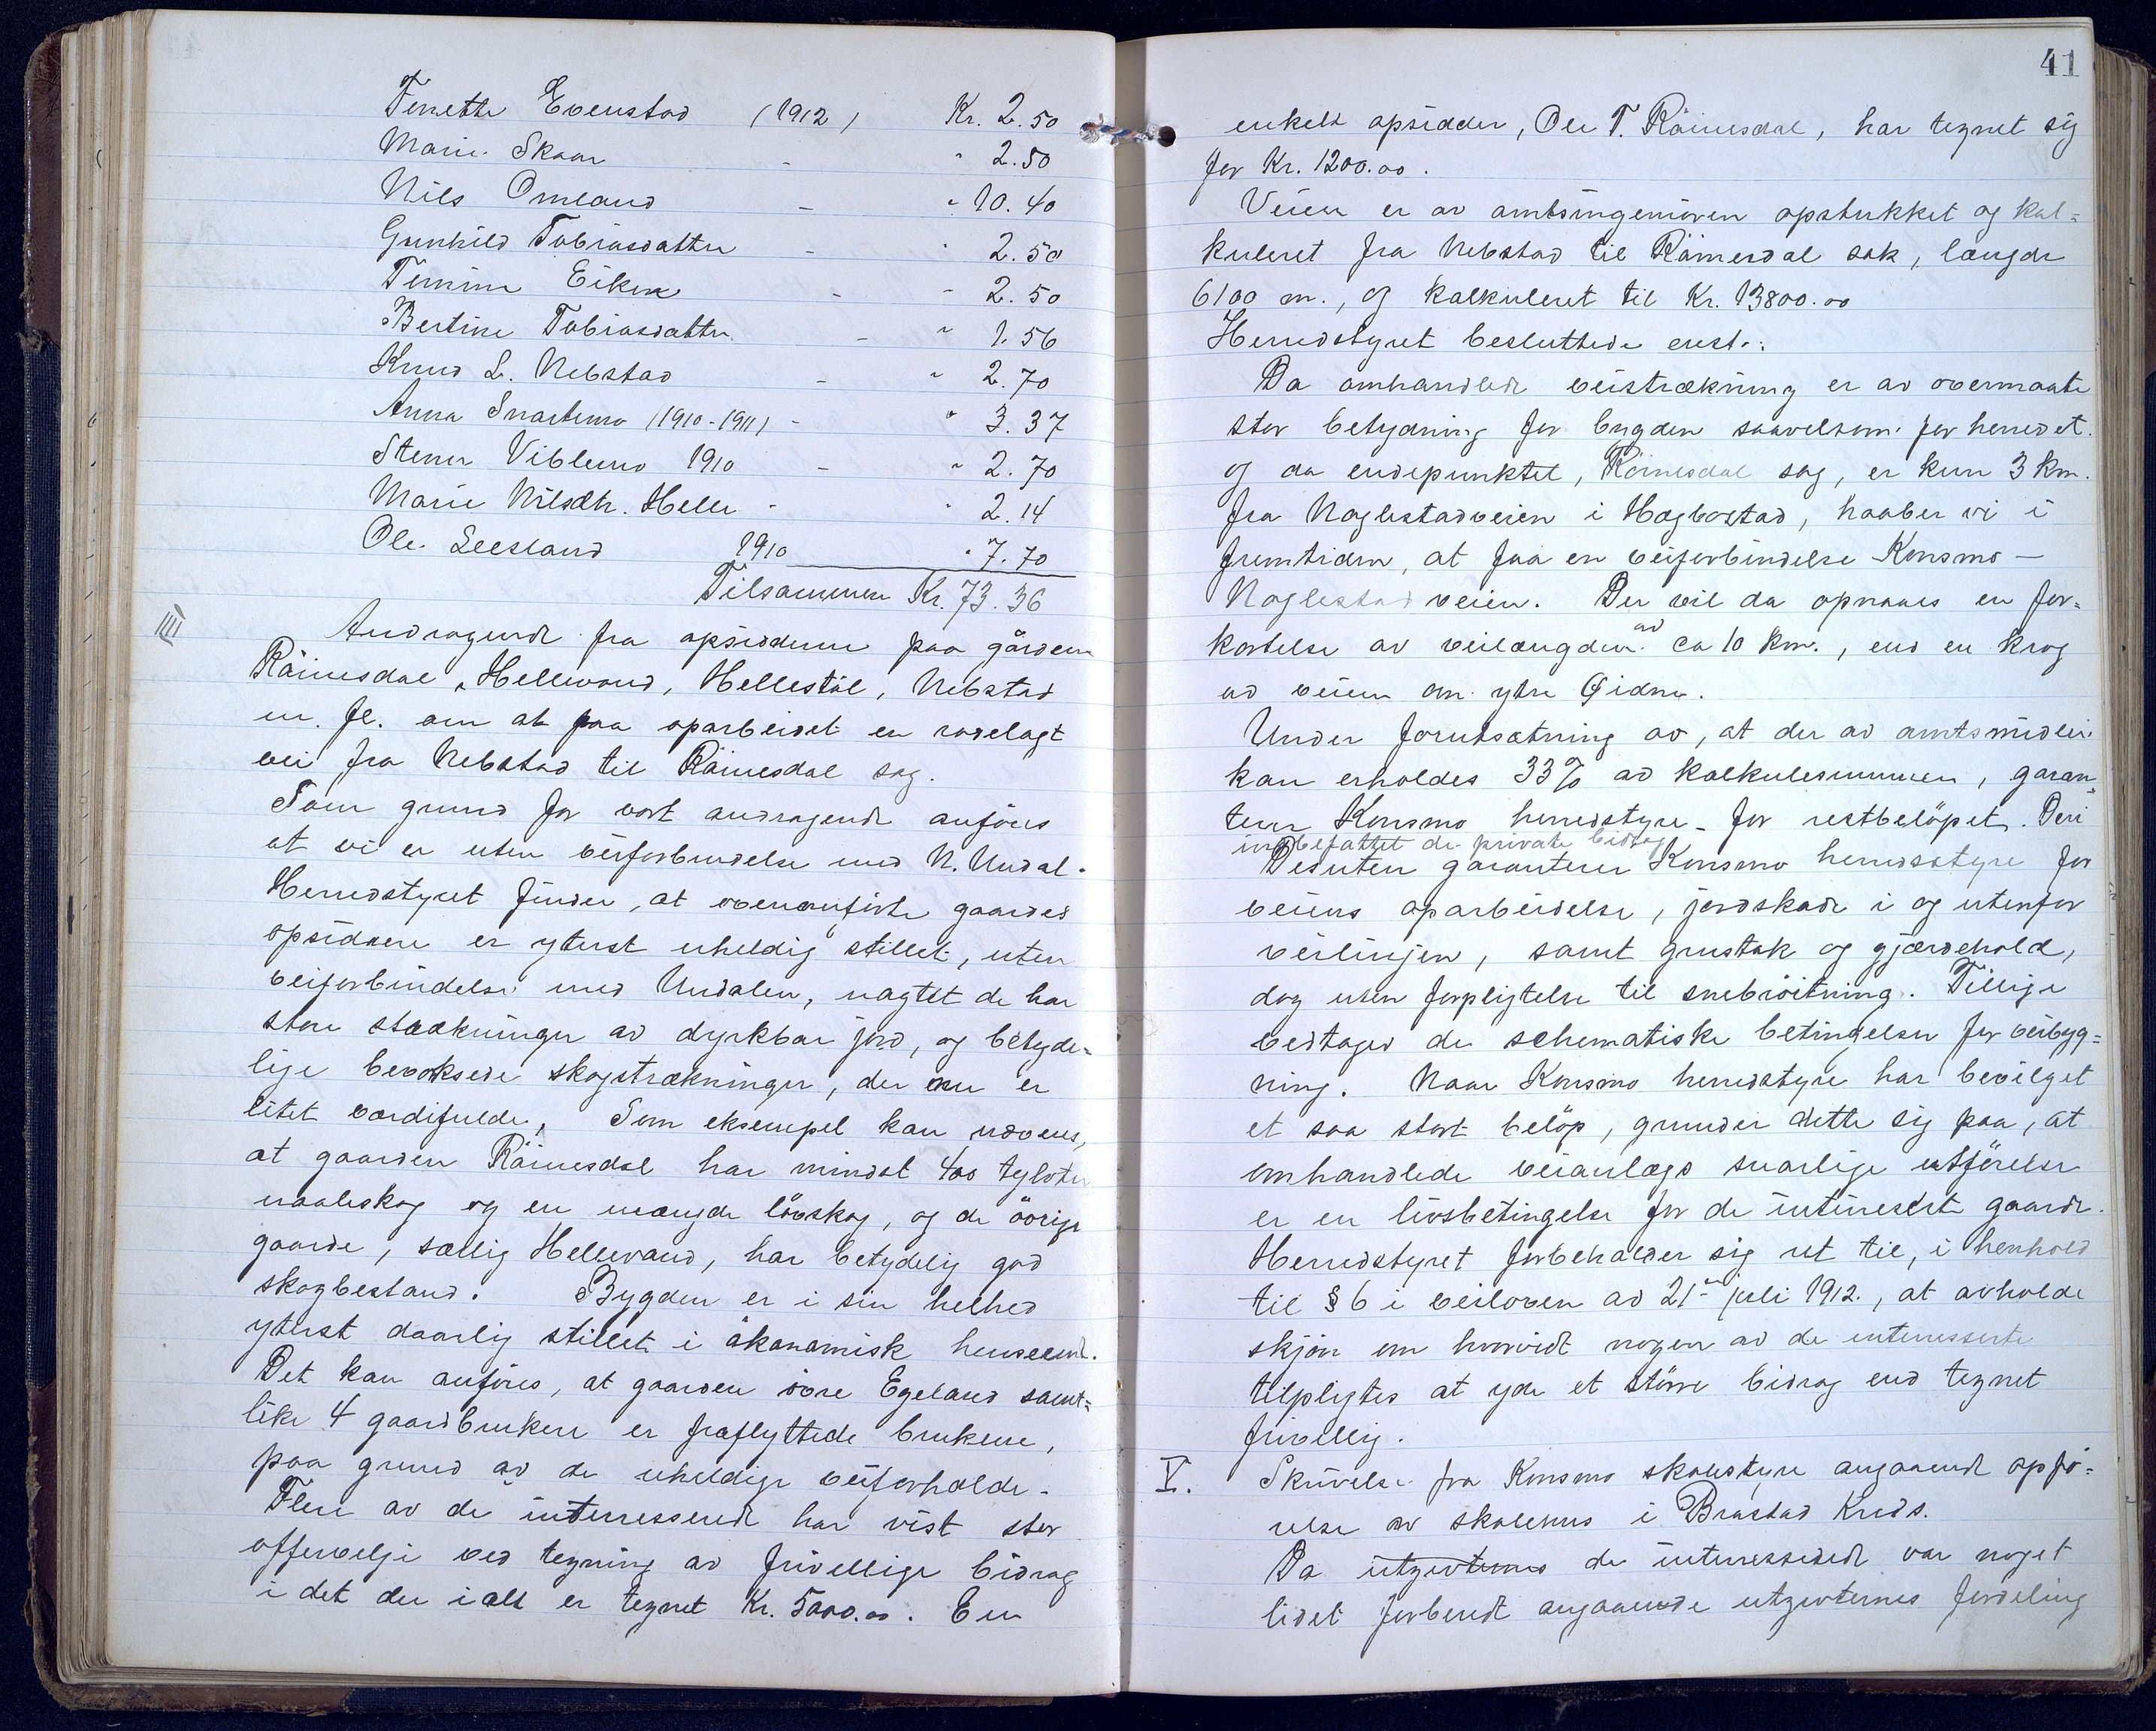 Tenette Evenstad (1912) Kr. 2.50
Marie Skaar - " 2.50
Nils Omland - " 10.40
Gunhild Tobiasdatter - " 2.50
Temine Eiken - - 2.50
Bertine Tobiasdatter - " 1.56
Knud L. Nebstad - " 2.70
Anna Snartemo (1910-1911) - " 3.37
Stener Viblemo 1910 - " 2.70
Marie Nilsdtr. Helle - " 2.14
Ole Leesland 1910 " 7.70
Tilsammen Kr. 73.36
III) Andragende fra opsidderne paa gårdene
Råinesdal, Hellevand, Hellestöl, Nebstad
m. fl. om at faa oparbeidet en rodelagt
vei fra Nebstad til Råinesdal sag.
Som grund for vort andragende anföres
at vi er uten veiforbindelse med N. Undal.
Herredstyret finder, at ovenanførte gaardes
opsiddere er yterst uheldig stillet, uten
veiforbindelse med Undalen, uagtet de har
store strækninger av dyrkbar jord, og betyde=
lige bevoksede skogstrækninger, der nu er
litet værdifulde. Som eksempel kan nævnes,
at gaarden Råinesdal har mindst 400 tylvter
naaleskog og en mængde lövskog, og de övrige
gaarde, særlig Hellevand, har betydelig god
skogbestand. Bygden er i sin helhed
yterst daarlig stillet i økonomisk henseende.
Det kan anføres, at gaarden övre Egeland samt=
like 4 gaardbrukere er fraflyttede brukene,
paa grund av de uheldige veiforholde.
Flere av de interesserede har vist stor
offervelje ved tegning av frivellige bidrag
i det der i alt er tegnet Kr. 5000.00. En
41
enkelt opsidder, Ole T. Råinesdal, har tegnet sig
for Kr. 1200.00.
Veien er av amtsingeniøren opstukket og kal=
kuleret fra Nebstad til Råinesdal sak, længde
6100 m., og kalkuleret til Kr. 13800.00
Herredstyret besluttede enst.:
Da omhandlede veistrækning er av overmaate
stor betydning for bygden saavelsom for herredet.
og da endepunktet, Råinesdal sag, er kun 3 km.
fra Naglestadveien i Hægbostad, haaber vi i
fremtiden, at faa en veiforbindelse Konsmo —
Naglestadveien. Der vil da opnaaes en for=
kortelse av veilængden av ca 10 km., end en krog
av veien om ytre Øidne.
Under forutsætning av, at der av amtsmidler
kan erholdes 33% av kalkulesummen, garan=
terer Konsmo herredstyre for restbelöpet. Deri
indbefattet de private bidrag
Desuten garanterer Konsmo herredsstyre for
veiens oparbeidelse, jordskade i og utenfor
veilinjen, samt grustak og gjærdehold,
dog uten forpligtelse til snebröitning. Tillige
vedtages de schematiske betingelser for veibyg=
ning. Naar Konsmo herredstyre har bevilget
et saa stort belöp, grunder dette sig paa, at
omhandlede veianlægs snarlige utförelse
er en livsbetingelse for de interessert gaarde.
Herredstyret forbeholder sig ret til, i henhold
til § 6 i veiloven av 21de juli 1912., at avholde
skjön om hvorvidt nogen av de interesserte
tilpligtes at yde et större bidrag end tegnet
frivellig.
V. Skrivelse fra Konsmo skolestyre angaaende opfö=
relse av skolehus i Brastad Kreds.
Da utgivternes de interesserede var noget
lidet forberedt angaaende utgivternes fordeling